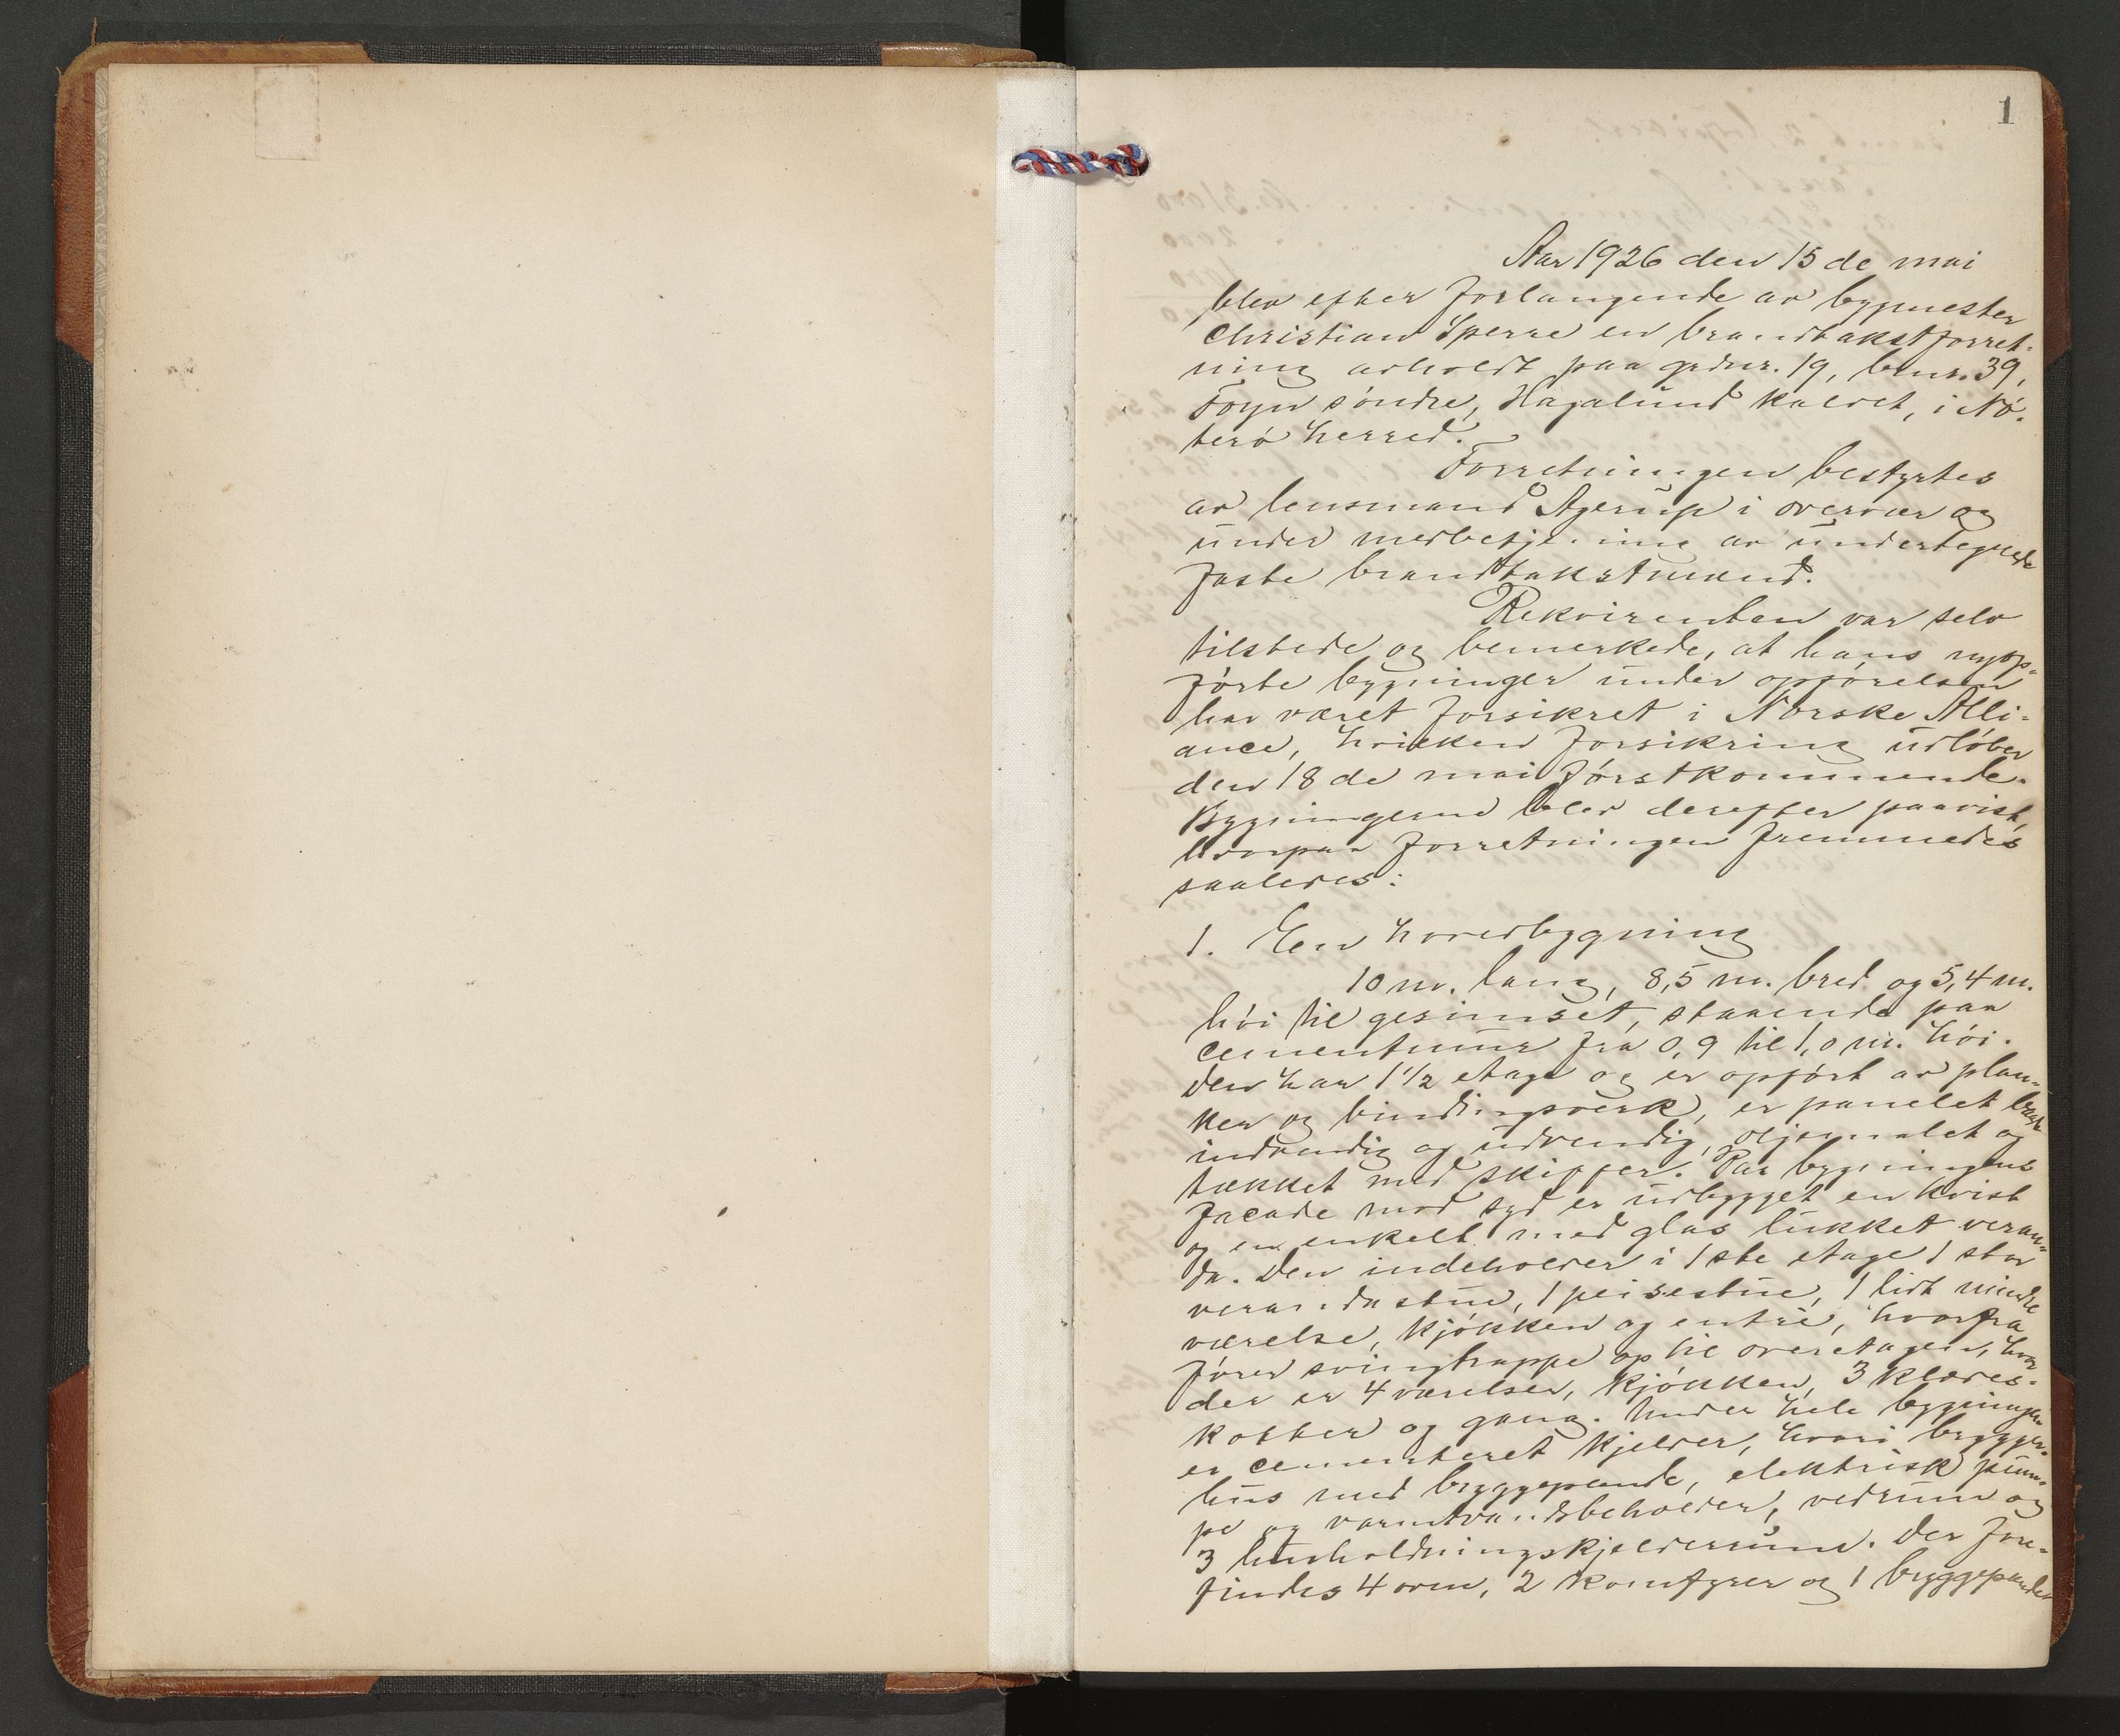 1
Aar 1926 den 15 de mai
blev efter forlangende av bygmester
Christian Sperre en brandtakstforret-
ning avholdt paa grdnr. 19, bnr. 39,
Foyn søndre, Hagalund kaldet, i Nø-
terø herred.
Forretningen bestyrtes
av lensmand Agerup i overvær og
under medbetjening av undertegnede
faste brandtakstmænd.
Rekvirenten var selv
tilstede og bemerkede, at hans nyop-
førte bygninger under opførelsen
har været forsikret i Norske Alli-
ance, hvilken forsikring utløber
den 18 de mai førstkommende.
Bygningerne blev derefter paavist,
hvorpaa forretningen fremmedes
saaledes:
1. En hovedbygning
10 m. lang, 8,5 m. bred og 5,4 m.
høi til gesimset, staaende paa
cementmur fra 0,9 til 1,0 m. høi.
Den har 1 1/2 etage og er opført av plan-
ker og bindingsverk, er panelet
indvendig og udvendig, oljemalet og
tækket med skiffer. Paa bygningens
facade mod syd er udbygget en kvist
og en enkelt med glas lukket veran-
da. Den indeholder i 1ste etage 1 stor
verandastue, 1 peisestue, 1 lidt mindre
værelse, kjøkken og entré, hvorfra
fører svingtrappe op til overetagen, hvor
der er 4 værelser, kjøkken, 3 klædes-
kotter og gang. Under hele bygningen
er cementeret kjelder, hvori brygger-
hus med bryggepande, elektrisk pum-
pe og varmtvandsbeholder, vedrum og
3 husholdningskjelderrum. Der fore-
findes 4 ovne, 2 komfyrer og 1 bryggepande